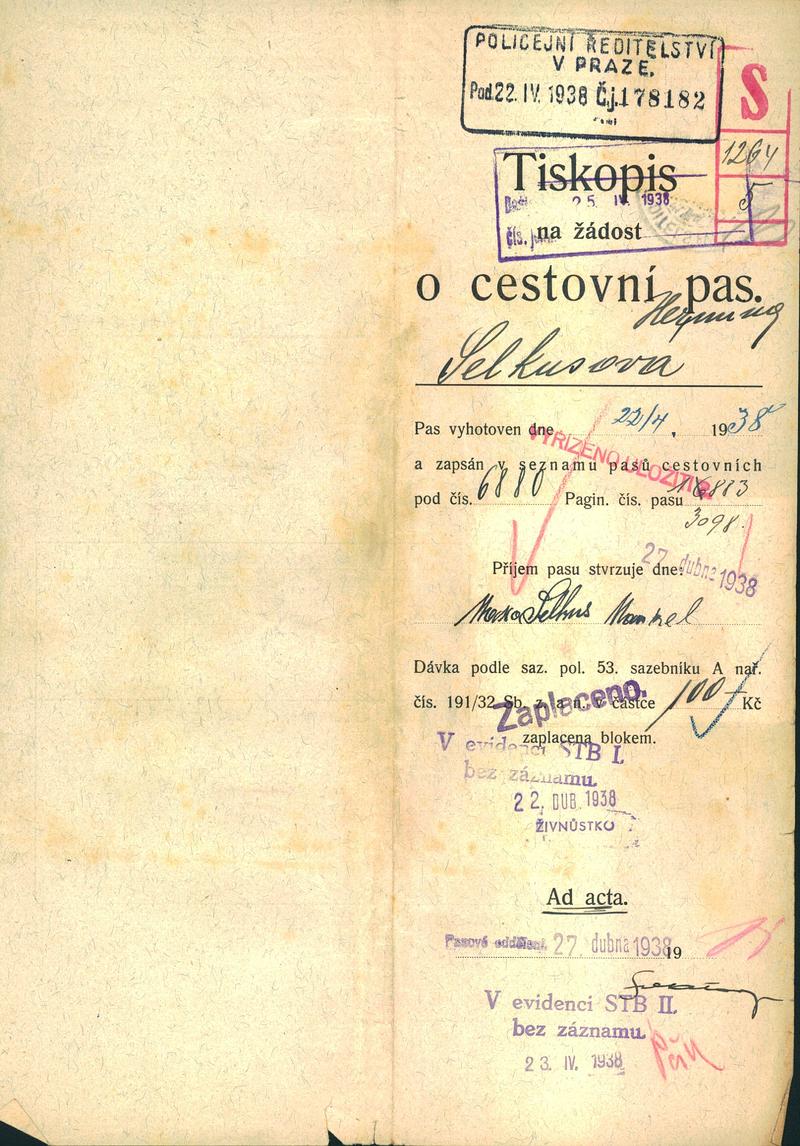 POLICEJNÍ ŘEDITELSTVÍ
V PRAZE.
Pod. 22. IV. 1938 Č.j. 178182
S
1264
5
Tiskopis
25. IV. 1938
čís.
na žádost
o cestovní pas.
Selkusova
Pas vyhotoven dne 22/4. 1938
VYŘÍZENO ULOŽITI
a zapsán v seznamu pasů cestovních
pod čís. 6880 Pagin. čís. pasu 16883
3098.
Příjem pasu stvrzuje dne:
27. dubna 1938
Selkus
Dávka podle saz. pol. 53. sazebníku A nař.
čís. 191/32 Sb. z. a n. v částce 100 Kč
Zaplaceno.
zaplacena blokem.
V evidenci STB I.
bez záznamu.
22. DUB. 1938
ŽIVNŮSTKO
Ad acta.
Pasové oddělení. 27. dubna 1938 19
V evidenci STB II.
bez záznamu.
23. IV. 1938